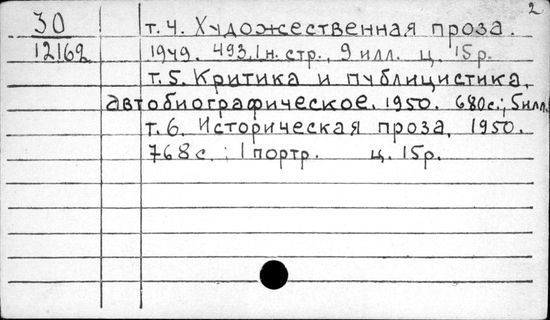 2
30 т.4. Художественная проза.
12162 1949. 493,1 н. стр., 9 илл. ц. 15р.
т.5. Критика и публицистика,
автобиографическое. 1950. 680с.; 5илл.
т.6. Историческая проза, 1950.
768с.; 1 портр. ц. 15р.